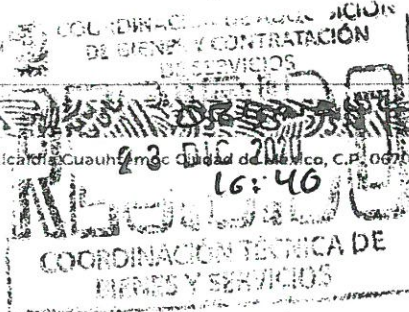 COORDINACIÓN DE ADQUISICIÓN
DE BIENES Y CONTRATACIÓN
DE SERVICIOS
Alcaldía Cuauhtémoc Ciudad de México, C.P. 067
23 DIC. 20
16:40
COORDINACIÓN TÉCNICA DE
BIENES Y SERVICIOS